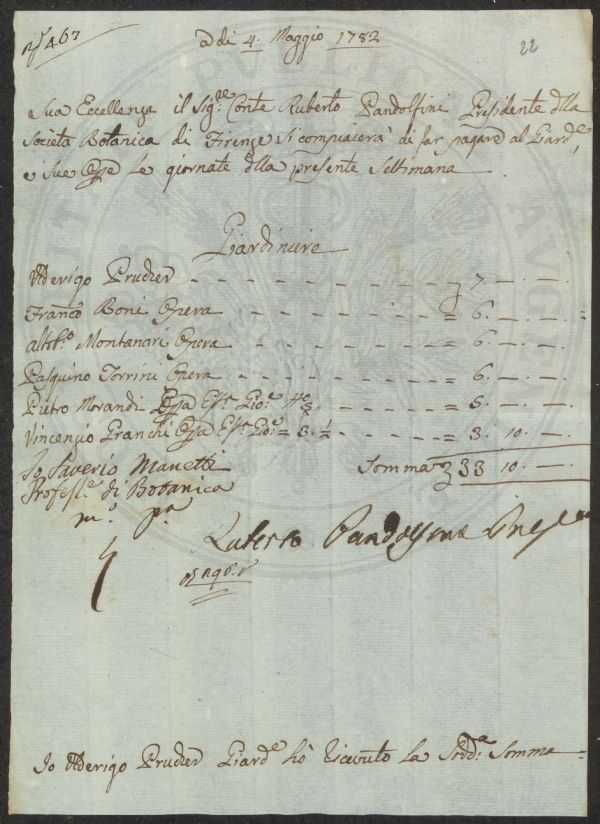 N° 467
a di 4. Maggio 1782
22
Sua Eccellenza il Sig:re Conte Ruberto Pandolfini Presidente dlla
Società Botanica di Firenze si compiacerà di far pagare al Giard:e,
e sue Opre Le giornate dlla presente Settimana
Giardiniere
Uderigo Prucker - - - - - - - - - - - - 7. — —
Franc:o Boni Opera - - - - - - - - - = 6. — —
Montanari Opera - - - - - - - - = 6. — —
Pasquino Torrini Opera - - - - - - - - = 6. — —
Pietro Morandi Opra Gio: 4 - - - - - = 5. — —
Vincenzio Franchi Opra Gio: = 3. ½ = - - - - = 3. 10. —
Io Saverio Manetti Somma 33 10. —
Profess:e di Botanica
m:o p:a
Ruberto Pandolfini
Io Uderigo Prucker Giard:e hò ricevuto La Sodd:a Somma =